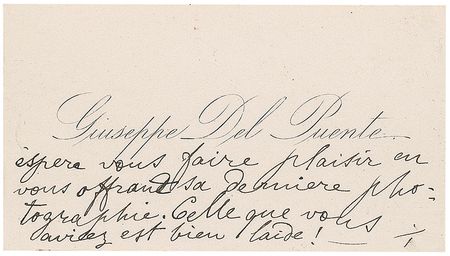 Giuseppe Del Puente
espere vous faire plaisir en
vous offrant sa derniere pho-
tographie. Celle que vous
aviez est bien laide!